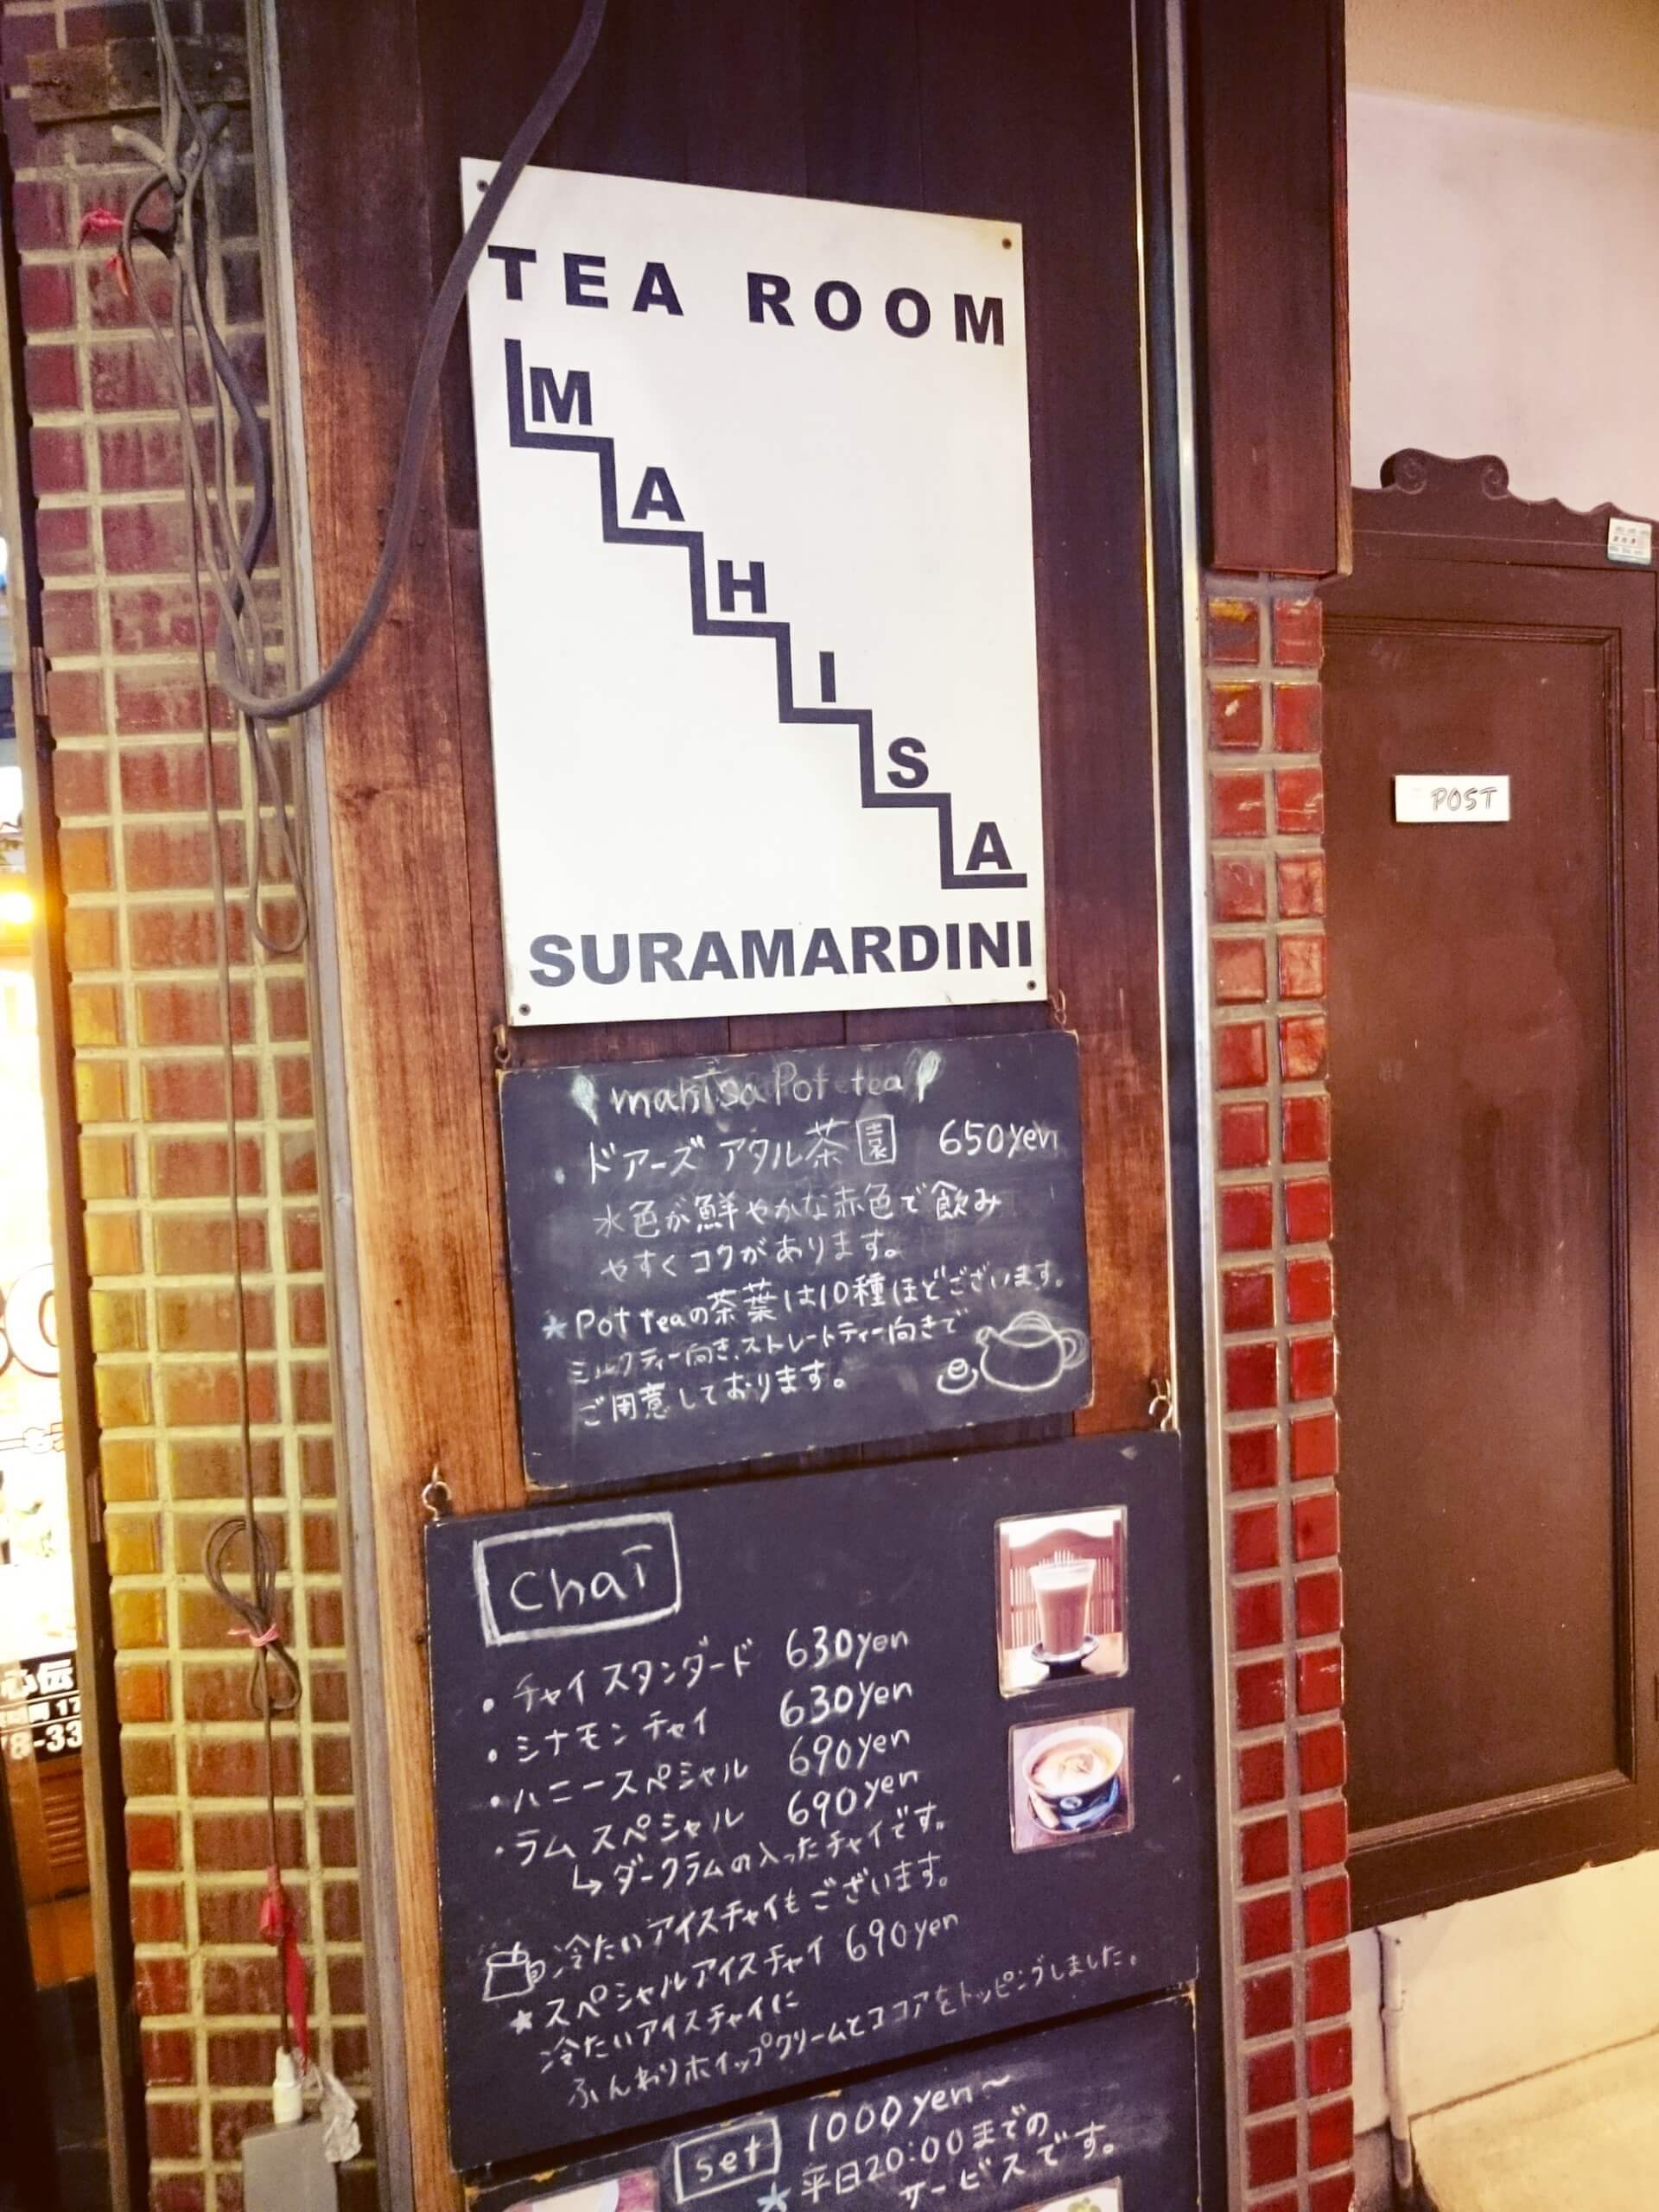 TEA ROOM
MAHISA
SURAMARDINI
mahisa Pot tea
・ドアーズ アタル茶園 650yen
水色が鮮やかな赤色で飲み
やすくコクがあります。
★Pot teaの茶葉は10種ほどございます。
ミルクティー向き、ストレートティー向きで
ご用意しております。
Chai
・チャイスタンダード 630yen
・シナモンチャイ 630yen
・ハニースペシャル 690yen
・ラムスペシャル 690yen
↳ダークラムの入ったチャイです。
冷たいアイスチャイもございます。
★スペシャルアイスチャイ 690yen
冷たいアイスチャイに
ふんわりホイップクリームとココアをトッピングしました。
set 1000yen〜
★平日20:00までの
サービスです。
POST
心伝